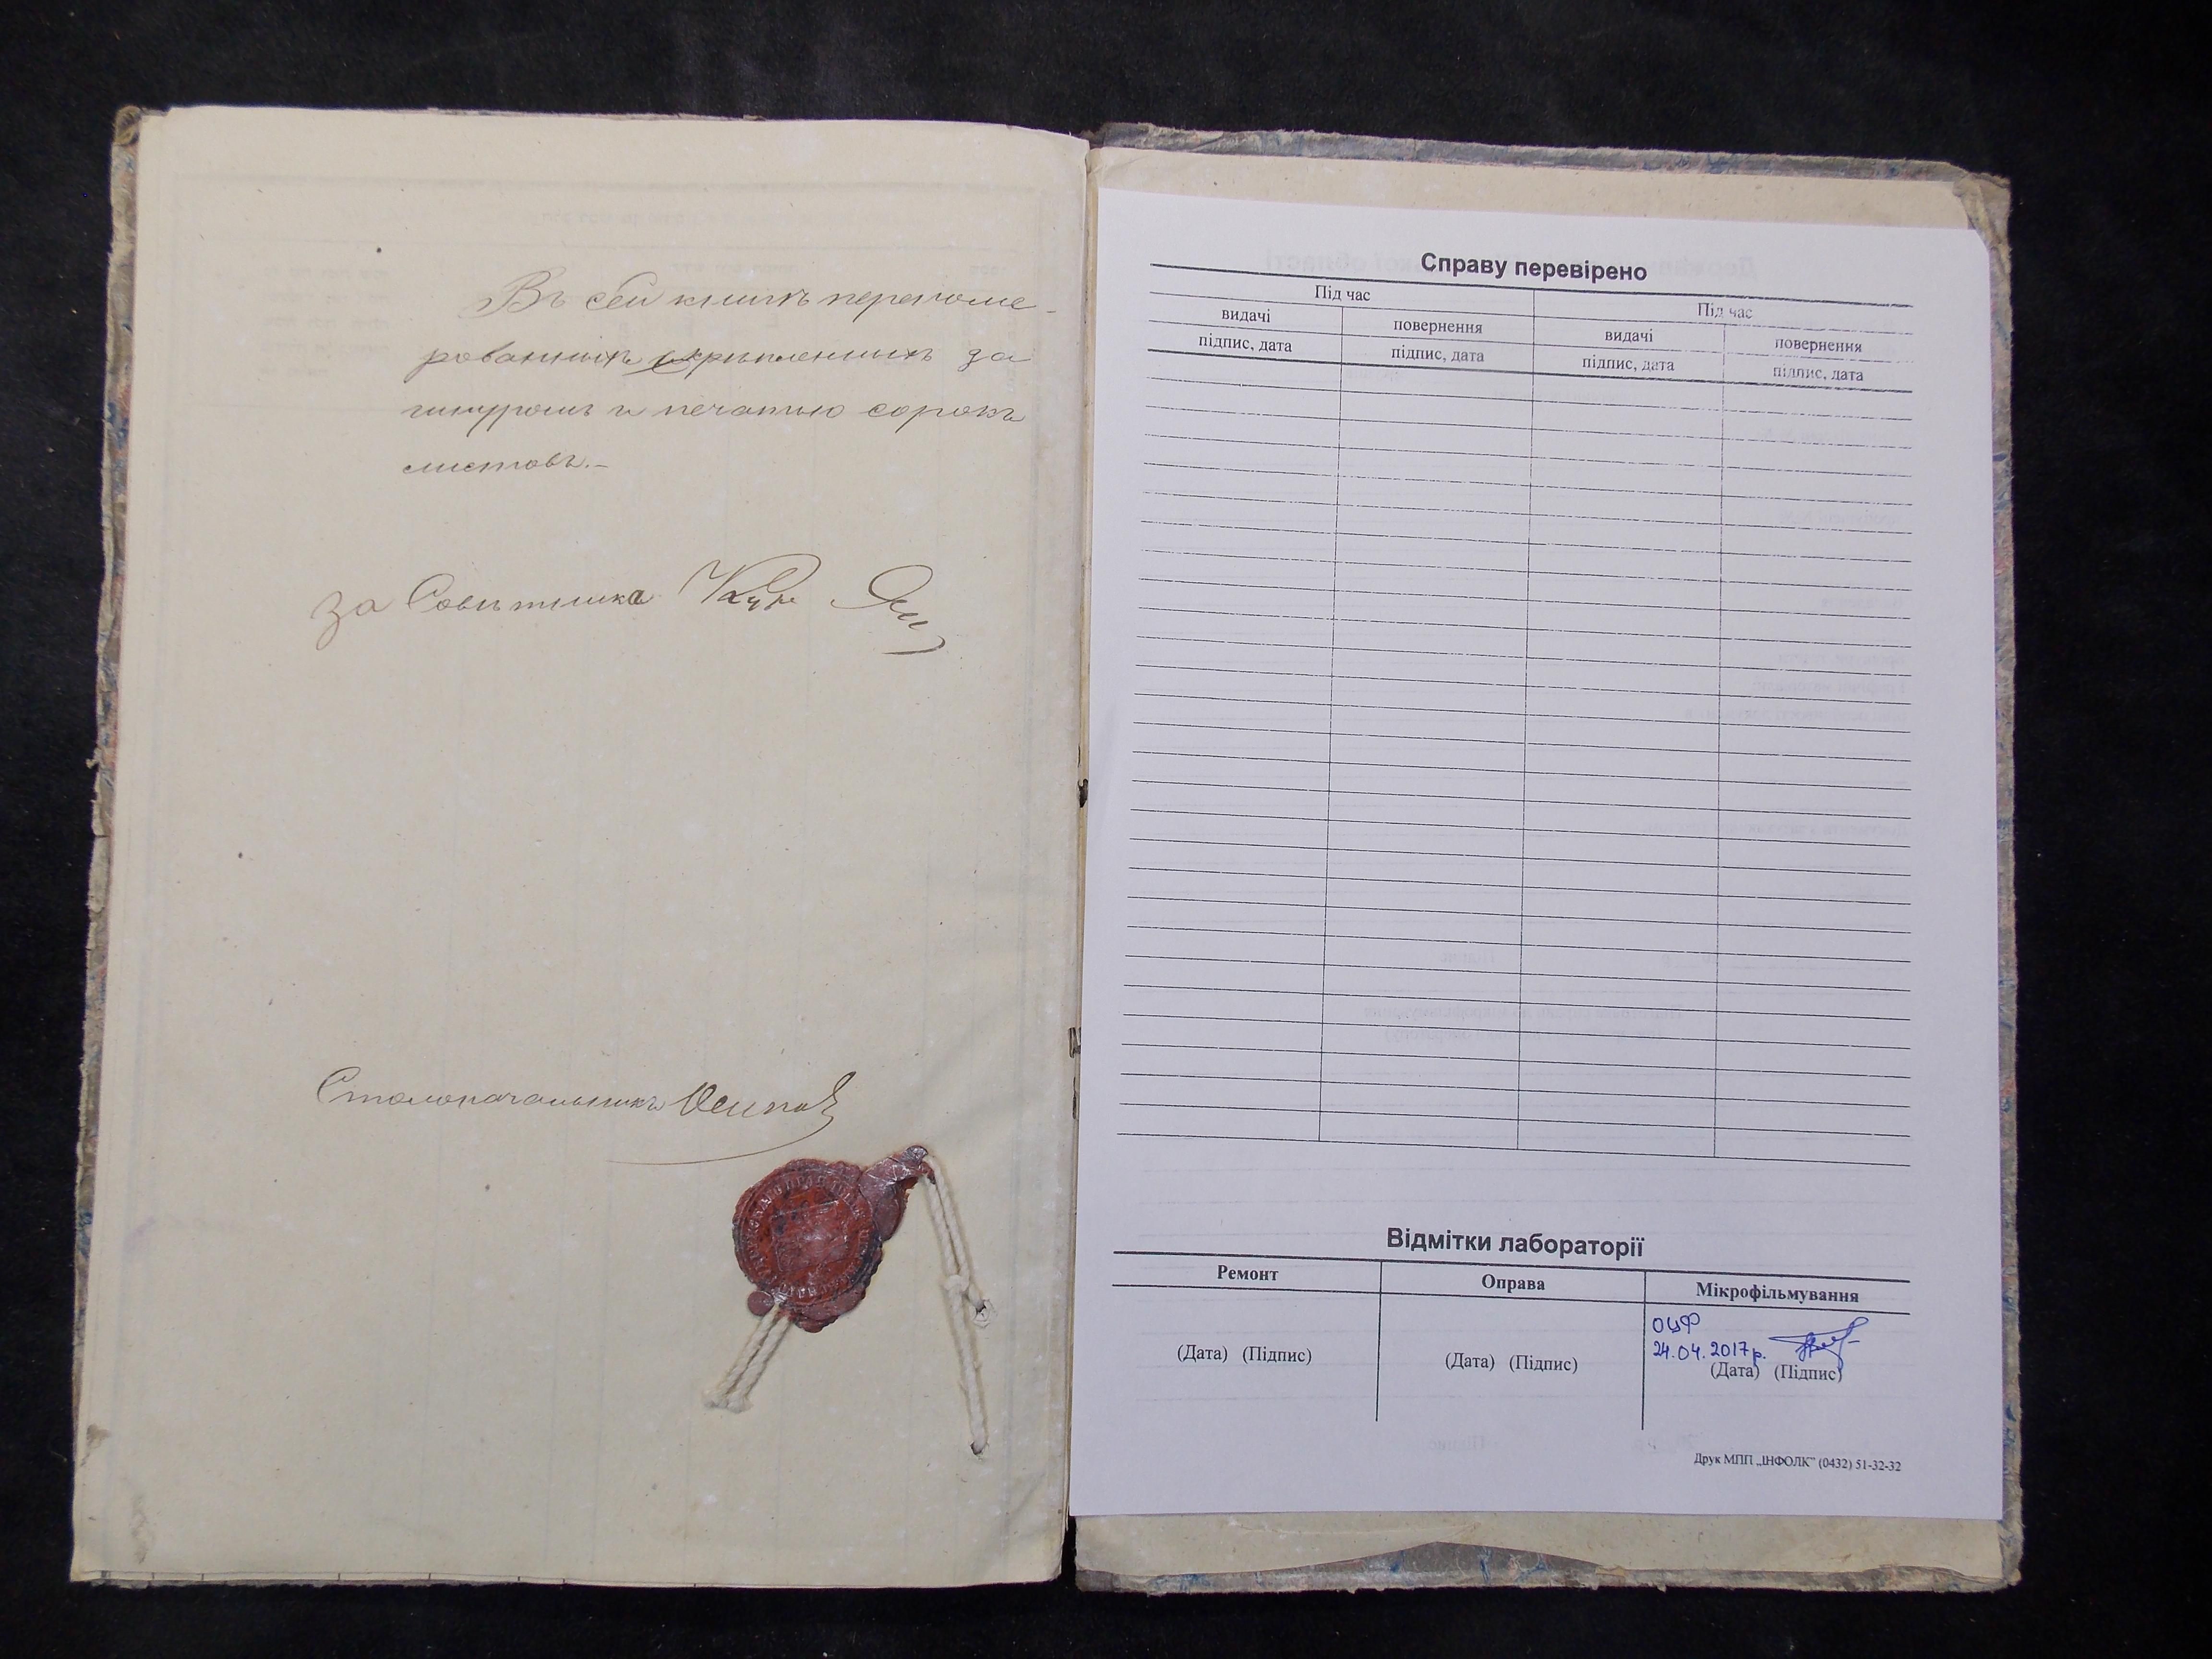 Въ сей книгѣ перенуме-
рованныхъ скрѣпленныхъ за
шнуромъ и печатью сорокъ
листовъ.-
За Совѣтника
Столоначальникъ Осипов
Справу перевірено
Під час
Під час
видачі
повернення
видачі
повернення
підпис, дата
підпис, дата
підпис, дата
підпис, дата
Відмітки лабораторії
Ремонт
Оправа
Мікрофільмування
ОЦФ
24.04.2017р.
(Дата) (Підпис)
(Дата) (Підпис)
(Дата) (Підпис)
Друк МПП „ІНФОЛК” (0432) 51-32-32